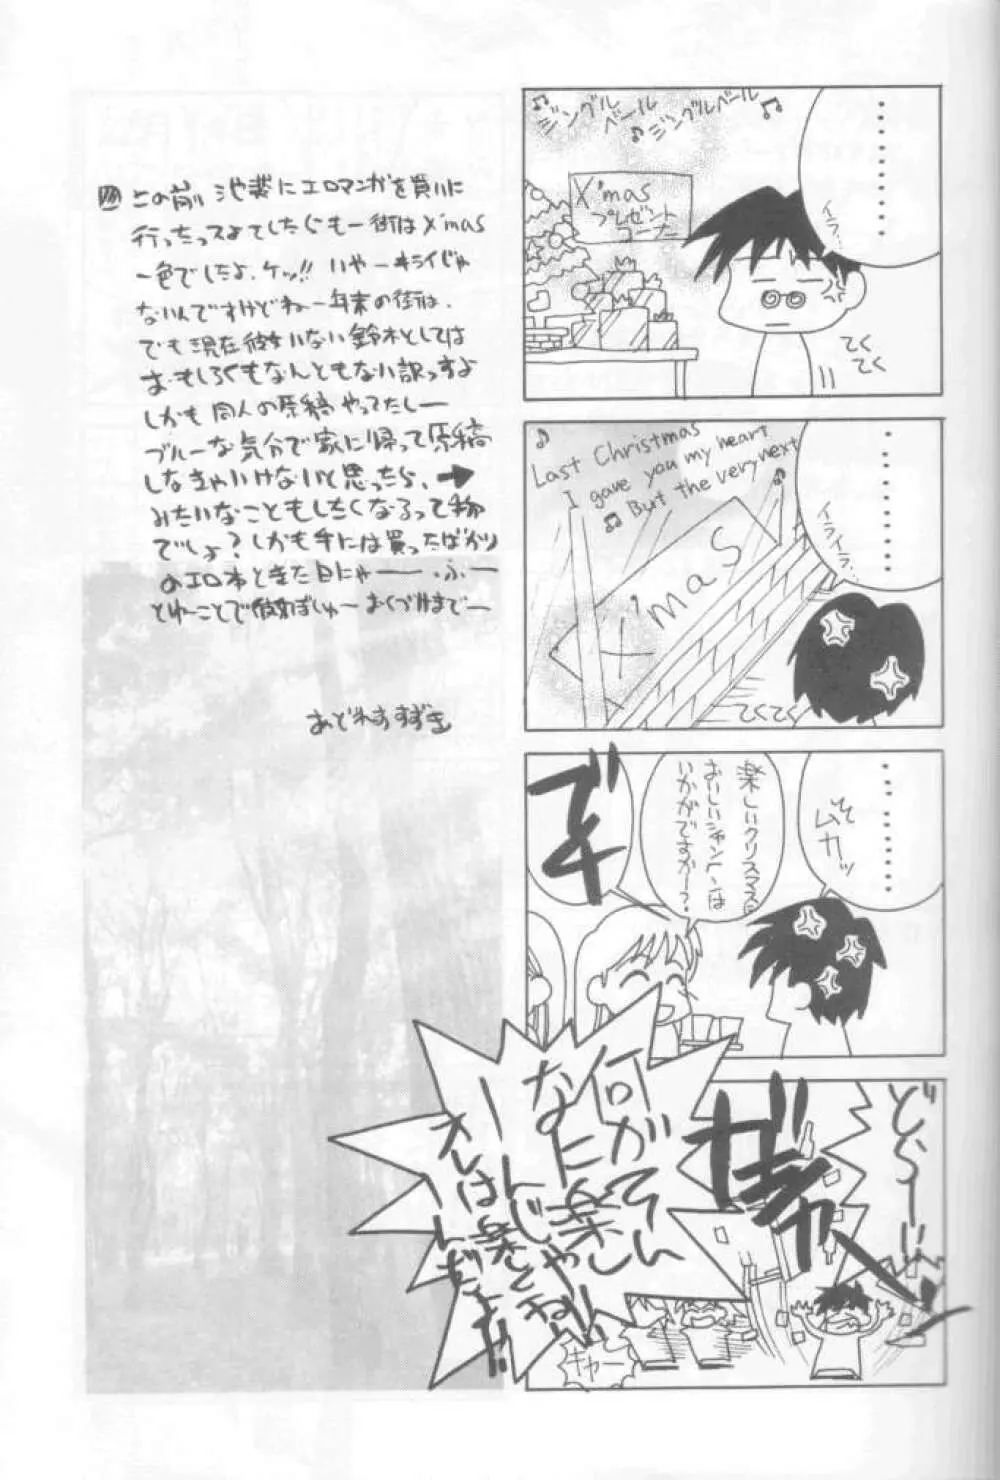 この前 池袋にエロマンガを買いに
行ったっスよ でしたらもー街はX'mas
一色でしたよ、ケッ!! いやーキライじゃ
ないんですけどねー年末の街は、
でも現在彼女いない鈴木としては
おもしろくもなんともない訳っすよ
しかも同人の原稿やってたしー
ブルーな気分で家に帰って原稿
しなきゃいけないと思ったら、→
みたいなこともしたくなるって物
でしょ? しかも手には買ったばかり
のエロ本ときた日にゃーー ふー
とゆーことで彼女ぼしゅー おくづけまでー
あどれすすずき
♪ジングルベール♪ジングルベール♪
X'mas
プレゼント
コーナー
・・・・・・・・
イライラ…
てくてく
♪
Last Christmas
I gave you my heart
♫ But the very next
♫
X'mas
・・・・・・・・
イライラ…
てくてく
・・・・・・・・
ムカッ
楽しいクリスマスに
おいしいシャンペンは
いかがですかー?
どらー!!
何が楽しい
オレは
キャー